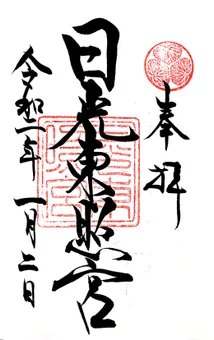 奉拝
日光東照宮
令和二年一月二日